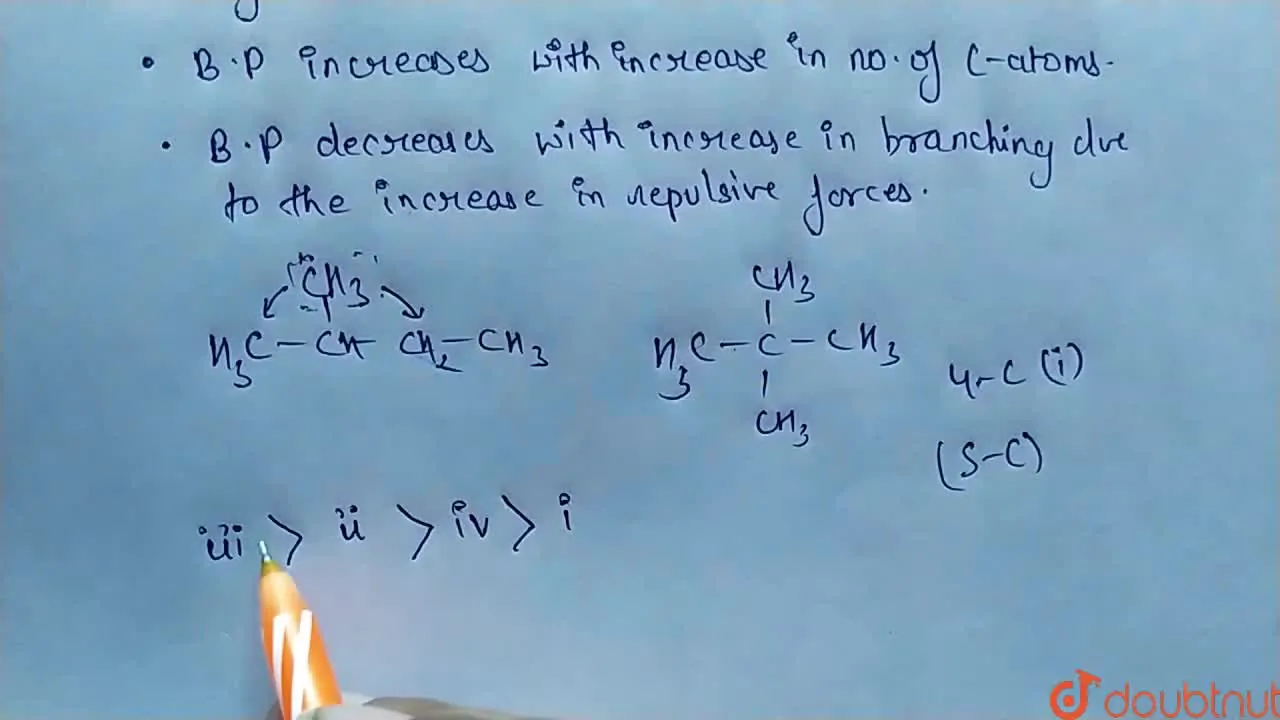 • B.P increases with increase in no. of C-atoms.
• B.P decreases with increase in branching due
to the increase in repulsive forces.
CH3
H3C-CH CH2-CH3
CH3
H3C-C-CH3
CH3
4-C (i)
(5-C)
iii > ii > iv > i
doubtnut